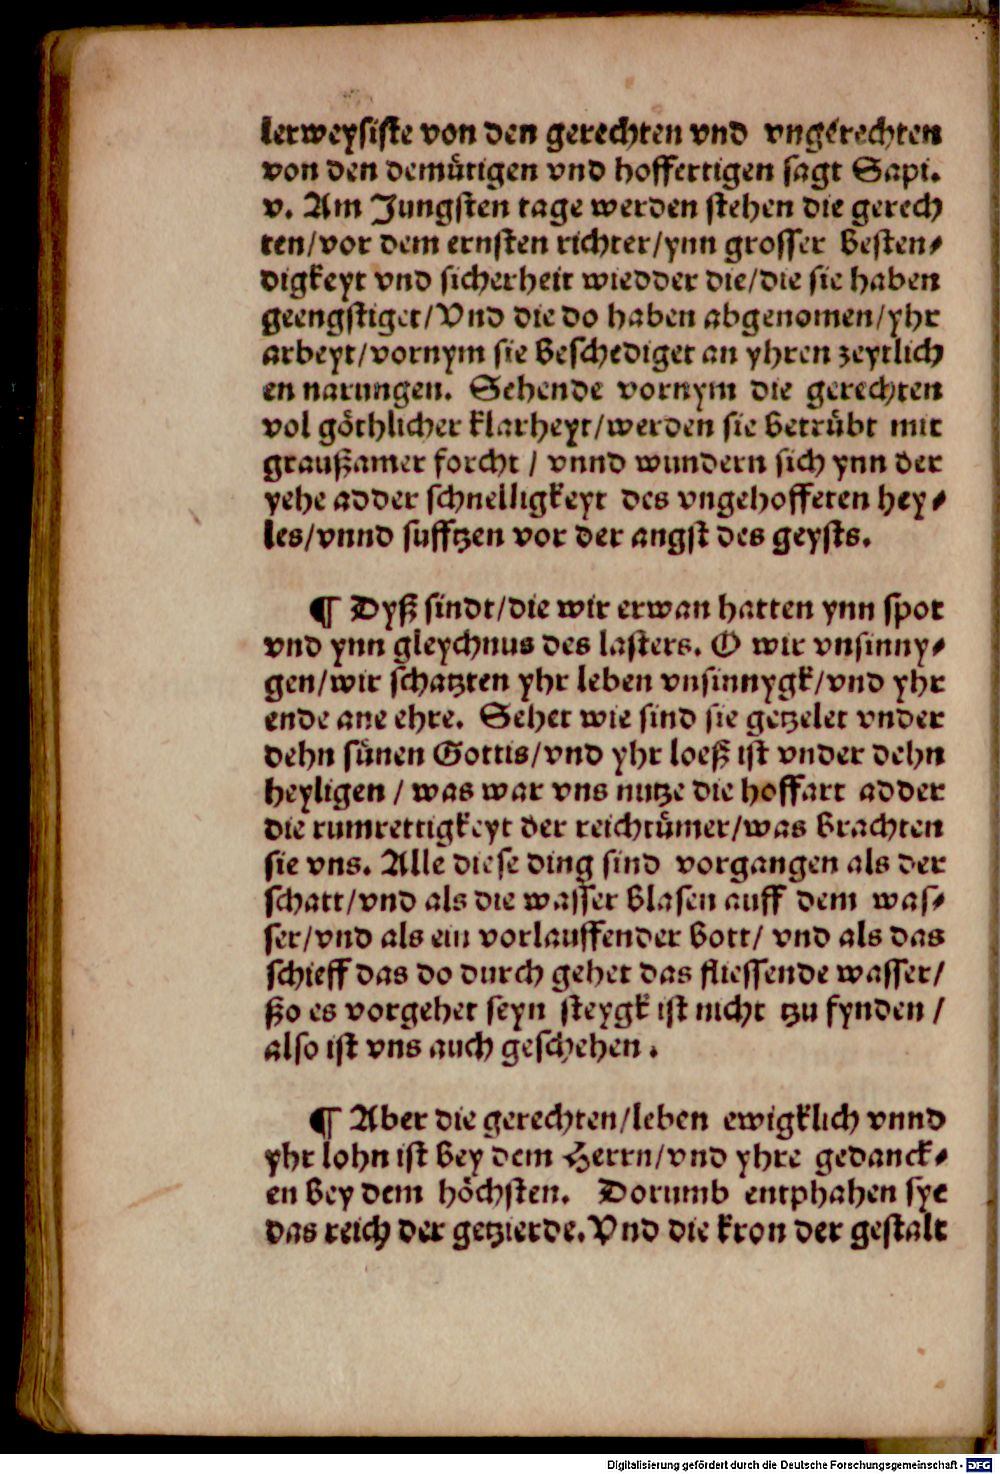 lerweysiste von den gerechten vnd vngerechten
von den demuͤtigen vnd hoffertigen sagt Sapi.
v. Am Jungsten tage werden stehen die gerech
ten/vor dem ernsten richter/ynn grosser besten⸗
digkeyt vnd sicherheit wiedder die/die sie haben
geengstiget/Vnd die do haben abgenomen/yhr
arbeyt/vornym sie beschediget an yhren zeytlich
en narungen. Sehende vornym die gerechten
vol goͤthlicher klarheyt/werden sie betruͤbt mit
graußamer forcht / vnnd wundern sich ynn der
yehe adder schnelligkeyt des vngehoffeten hey⸗
les/vnnd sufftzen vor der angst des geysts.
¶ Dyß sindt/die wir etwan hatten ynn spot
vnd ynn gleychnus des lasters. O wir vnsinny⸗
gen/wir schatzten yhr leben vnsinnygk/vnd yhr
ende ane ehre. Sehet wie sind sie getzelet vnder
dehn suͤnen Gottis/vnd yhr loeß ist vnder dehn
heyligen / was war vns nutze die hoffart adder
die rumrettigkeyt der reichtuͤmer/was brachten
sie vns. Alle diese ding sind vorgangen als der
schatt/vnd als die wasser blasen auff dem was⸗
ser/vnd als ein vorlauffender bott/ vnd als das
schieff das do durch gehet das fliessende wasser/
ßo es vorgehet seyn steygk ist nicht tzu fynden /
also ist vns auch geschehen .
¶ Aber die gerechten/leben ewigklich vnnd
yhr lohn ist bey dem Herrn/vnd yhre gedanck⸗
en bey dem hoͤchsten. Dorumb entphahen sye
das reich der getzierde. Vnd die kron der gestalt
Digitalisierung gefördert durch die Deutsche Forschungsgemeinschaft - DFG